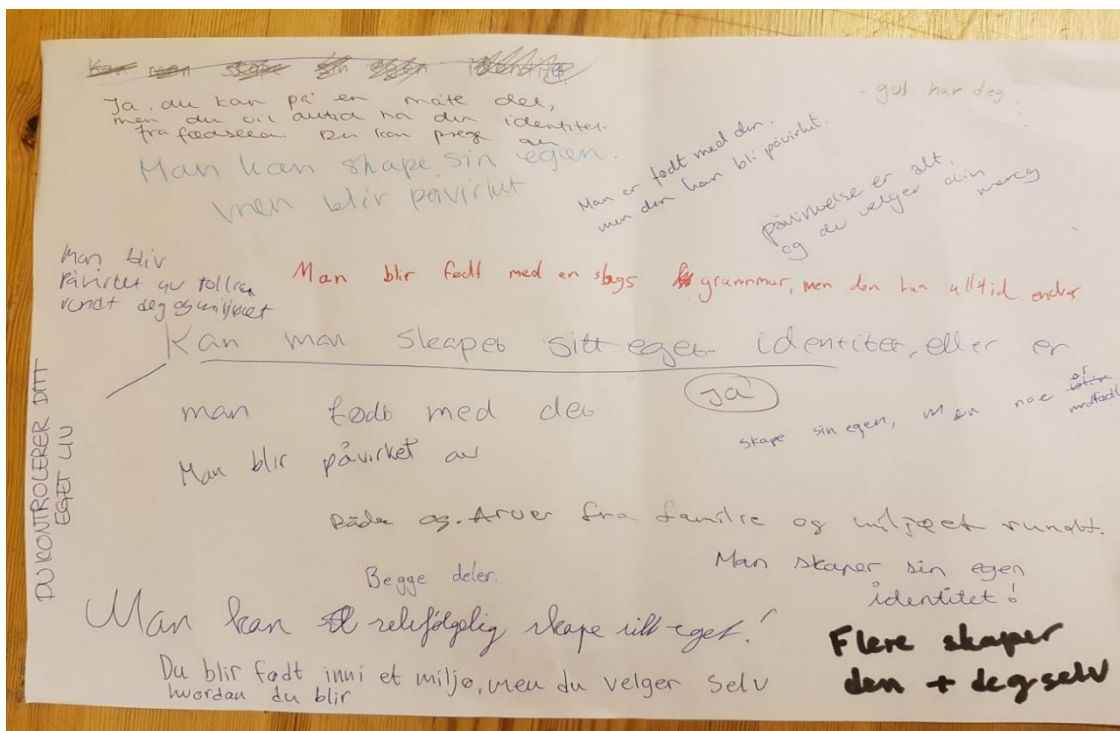 Kan man skape sin egen identitet
Ja. du kan på en måte det,
men du vil alltid ha din identitet.
fra fødselen Du kan prege den
- gud har deg
Man kan skape sin egen.
men blir påvirket
Man er født med den.
men den kan bli påvirket.
påvirkelse er alt,
og du velger din
Man blir
påvirket av
rundt deg og miljøet
Man blir født med en slags grammar, men den kan alltid endres
Kan man skapet sitt eget identitet, eller er
man født med det
Ja
skape sin egen, men noe er
medfødt
Man blir påvirket av
DU KONTROLERER DITT
EGET LIV
Både og. Arver fra familie og miljøet rundt.
Begge deler.
Man skaper sin egen
identitet!
Man kan selvfølgelig skape sitt eget!
Flere skaper
den + deg selv
Du blir født inni et miljø, men du velger selv
hvordan du blir